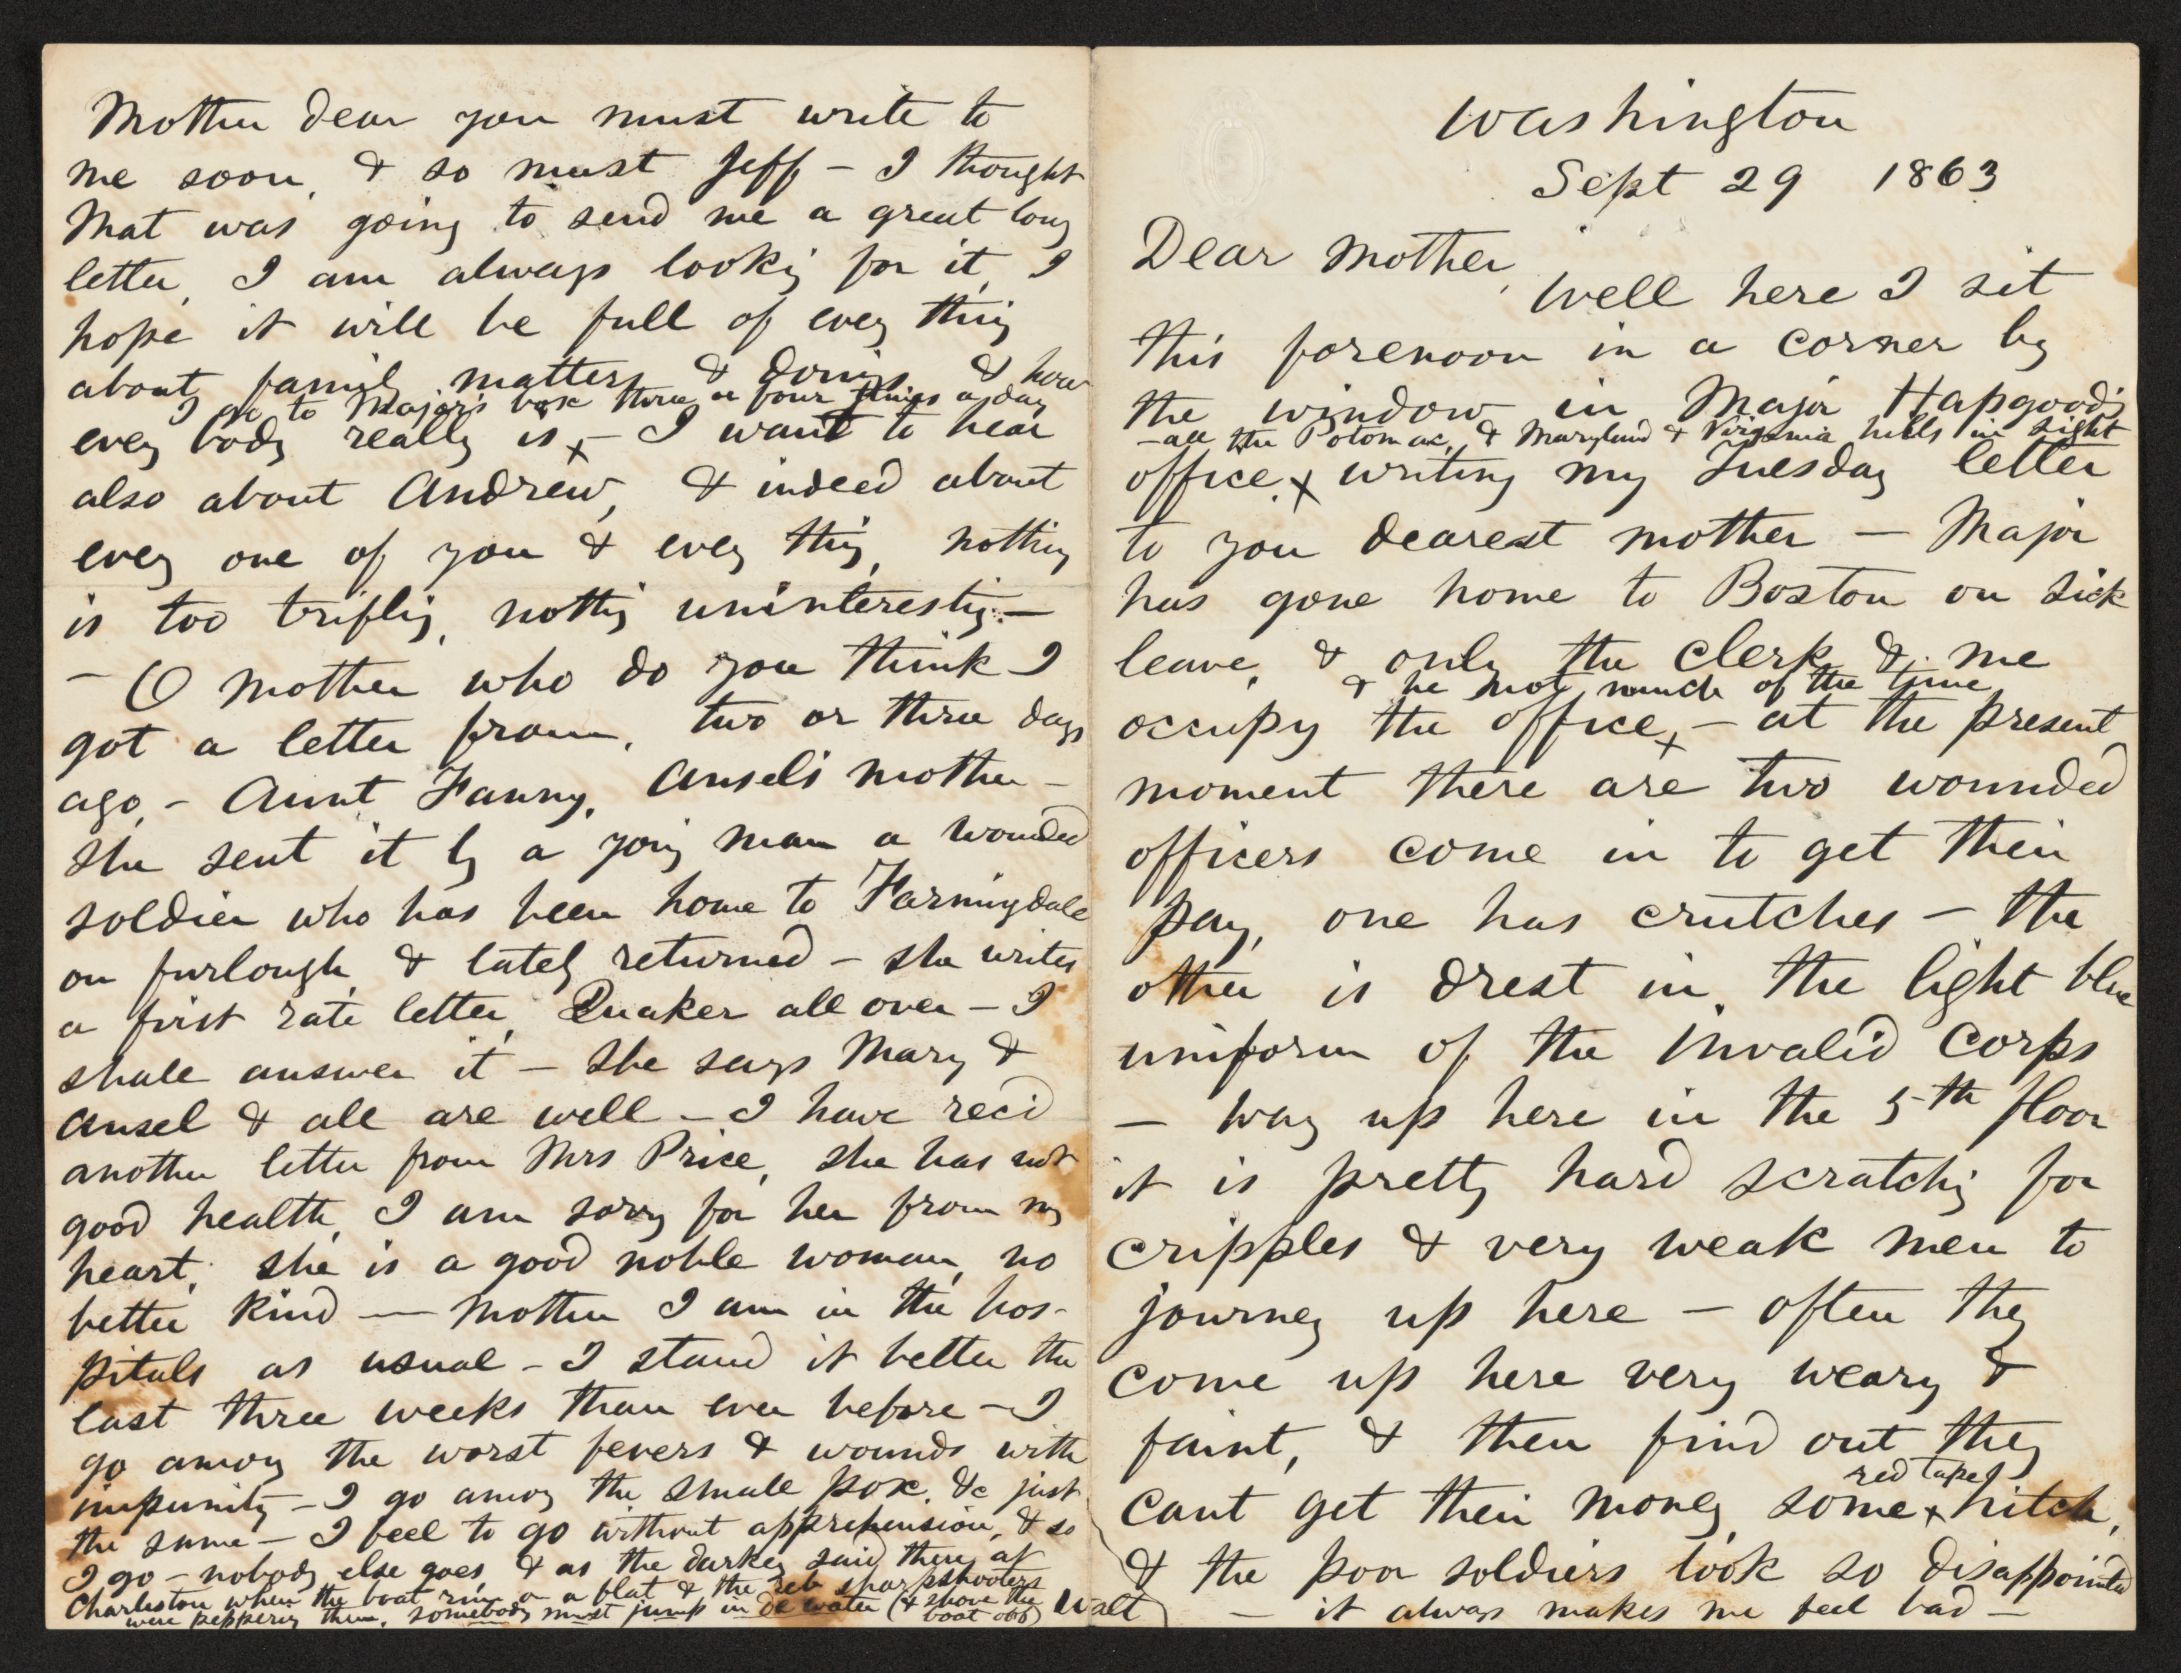 Washington
Sept 29 1863
Dear Mother,
Well here I sit
this forenoon in a corner by
the window in Major Hapgood's
— all the Potomac, & Maryland & Virginia hills in sight
office, x writing my Tuesday letter
to you dearest mother — Major
has gone home to Boston on sick
leave, & only the clerk & me
& he not much of the time
occupy the office, x — at the present
moment there are two wounded
officers come in to get their
pay, one has crutches — the
other is drest in the light blue
uniform of the invalid corps
— way up here in the 5th floor
it is pretty hard scratching for
cripples & very weak men to
journey up here — often they
come up here very weary &
faint, & then find out they
red tape
cant get their money, some x hitch,
& the poor soldiers look so disappointed
— it always makes me feel bad —
Mother dear you must write to
me soon, & so must Jeff — I thought
Mat was going to send me a great long
letter, I am always looking for it, I
hope it will be full of every thing
about family matters & doings & how
I go to Major's box three or four times a day
every body really is x — I want to hear
also about Andrew, & indeed about
every one of you & every thing, nothing
is too trifling, nothing uninteresting —
— O mother who do you think I
got a letter from, two or three days
ago, — Aunt Fanny, Ansel's mother —
she sent it by a young man a wounded
soldier who has been home to Farmingdale
on furlough, & lately returned — she writes
a first rate letter, Quaker all over — I
shall answer it — She says Mary &
Ansel & all are well — I have rec'd
another letter from Mrs Price, she has not
good health, I am sorry for her from my
heart, she is a good noble woman, no
better kind — Mother I am in the hos-
pitals as usual — I stand it better the
last three weeks than ever before — I
go among the worst fevers & wounds with
impunity — I go among the small pox, &c just
the same — I feel to go without apprehension, & so
I go — nobody else goes, & as the darkey said there at
Charleston when the boat run on a flat & the reb sharpshooters
were peppering them, somebody must jump in de water (& shove the
boat off)
Walt